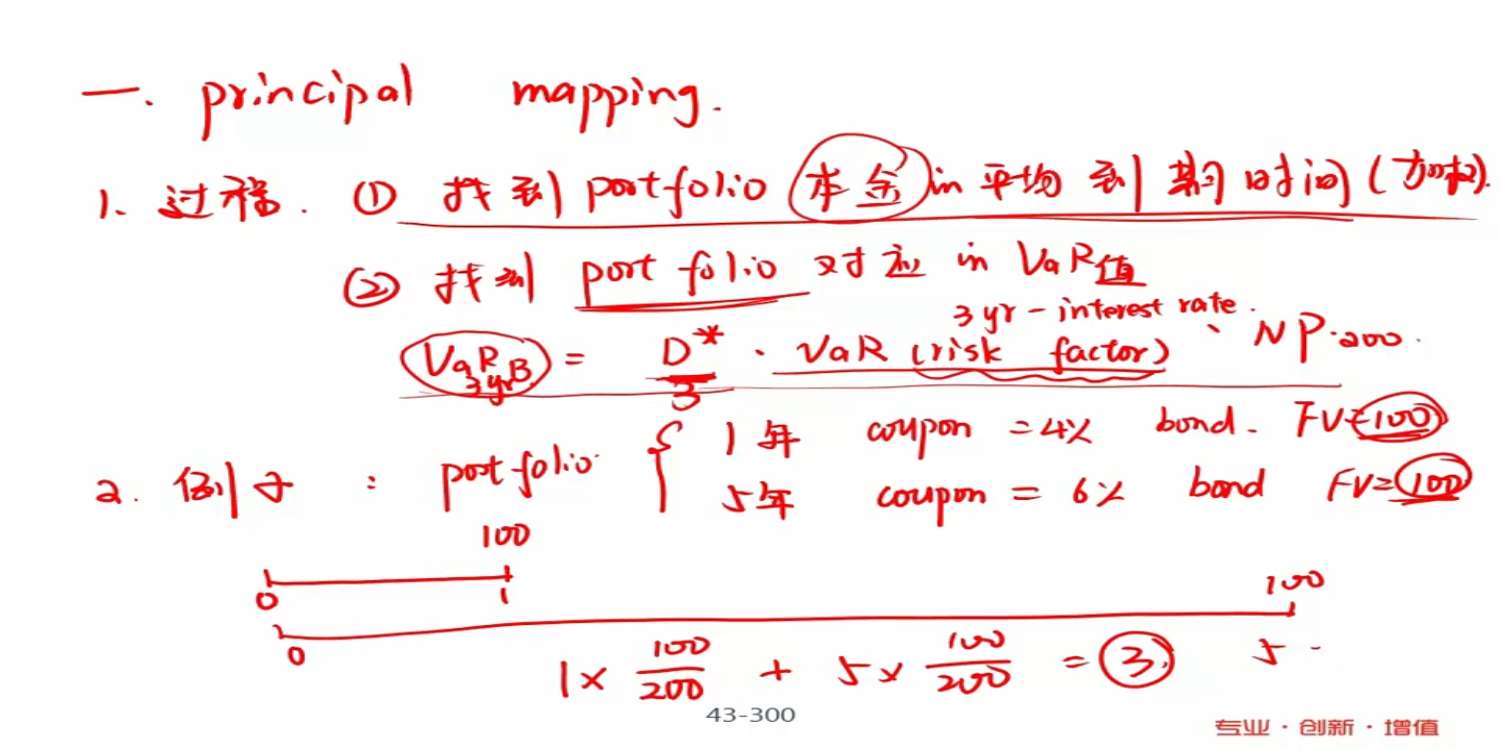 一. principal mapping.
1. 过程. ① 找到 portfolio 本金 in 平均到期时间 (加权).
② 找到 portfolio 对应 in VaR值
3 yr - interest rate.
VaR 3yrB = D* / 3 · VaR (risk factor) · NP·200.
2. 例子 : portfolio { 1年 coupon = 4% bond. FV=100
5年 coupon = 6% bond FV=100
100
0 1
100
0 5
1 × 100/200 + 5 × 100/200 = 3.
43-300
专业·创新·增值